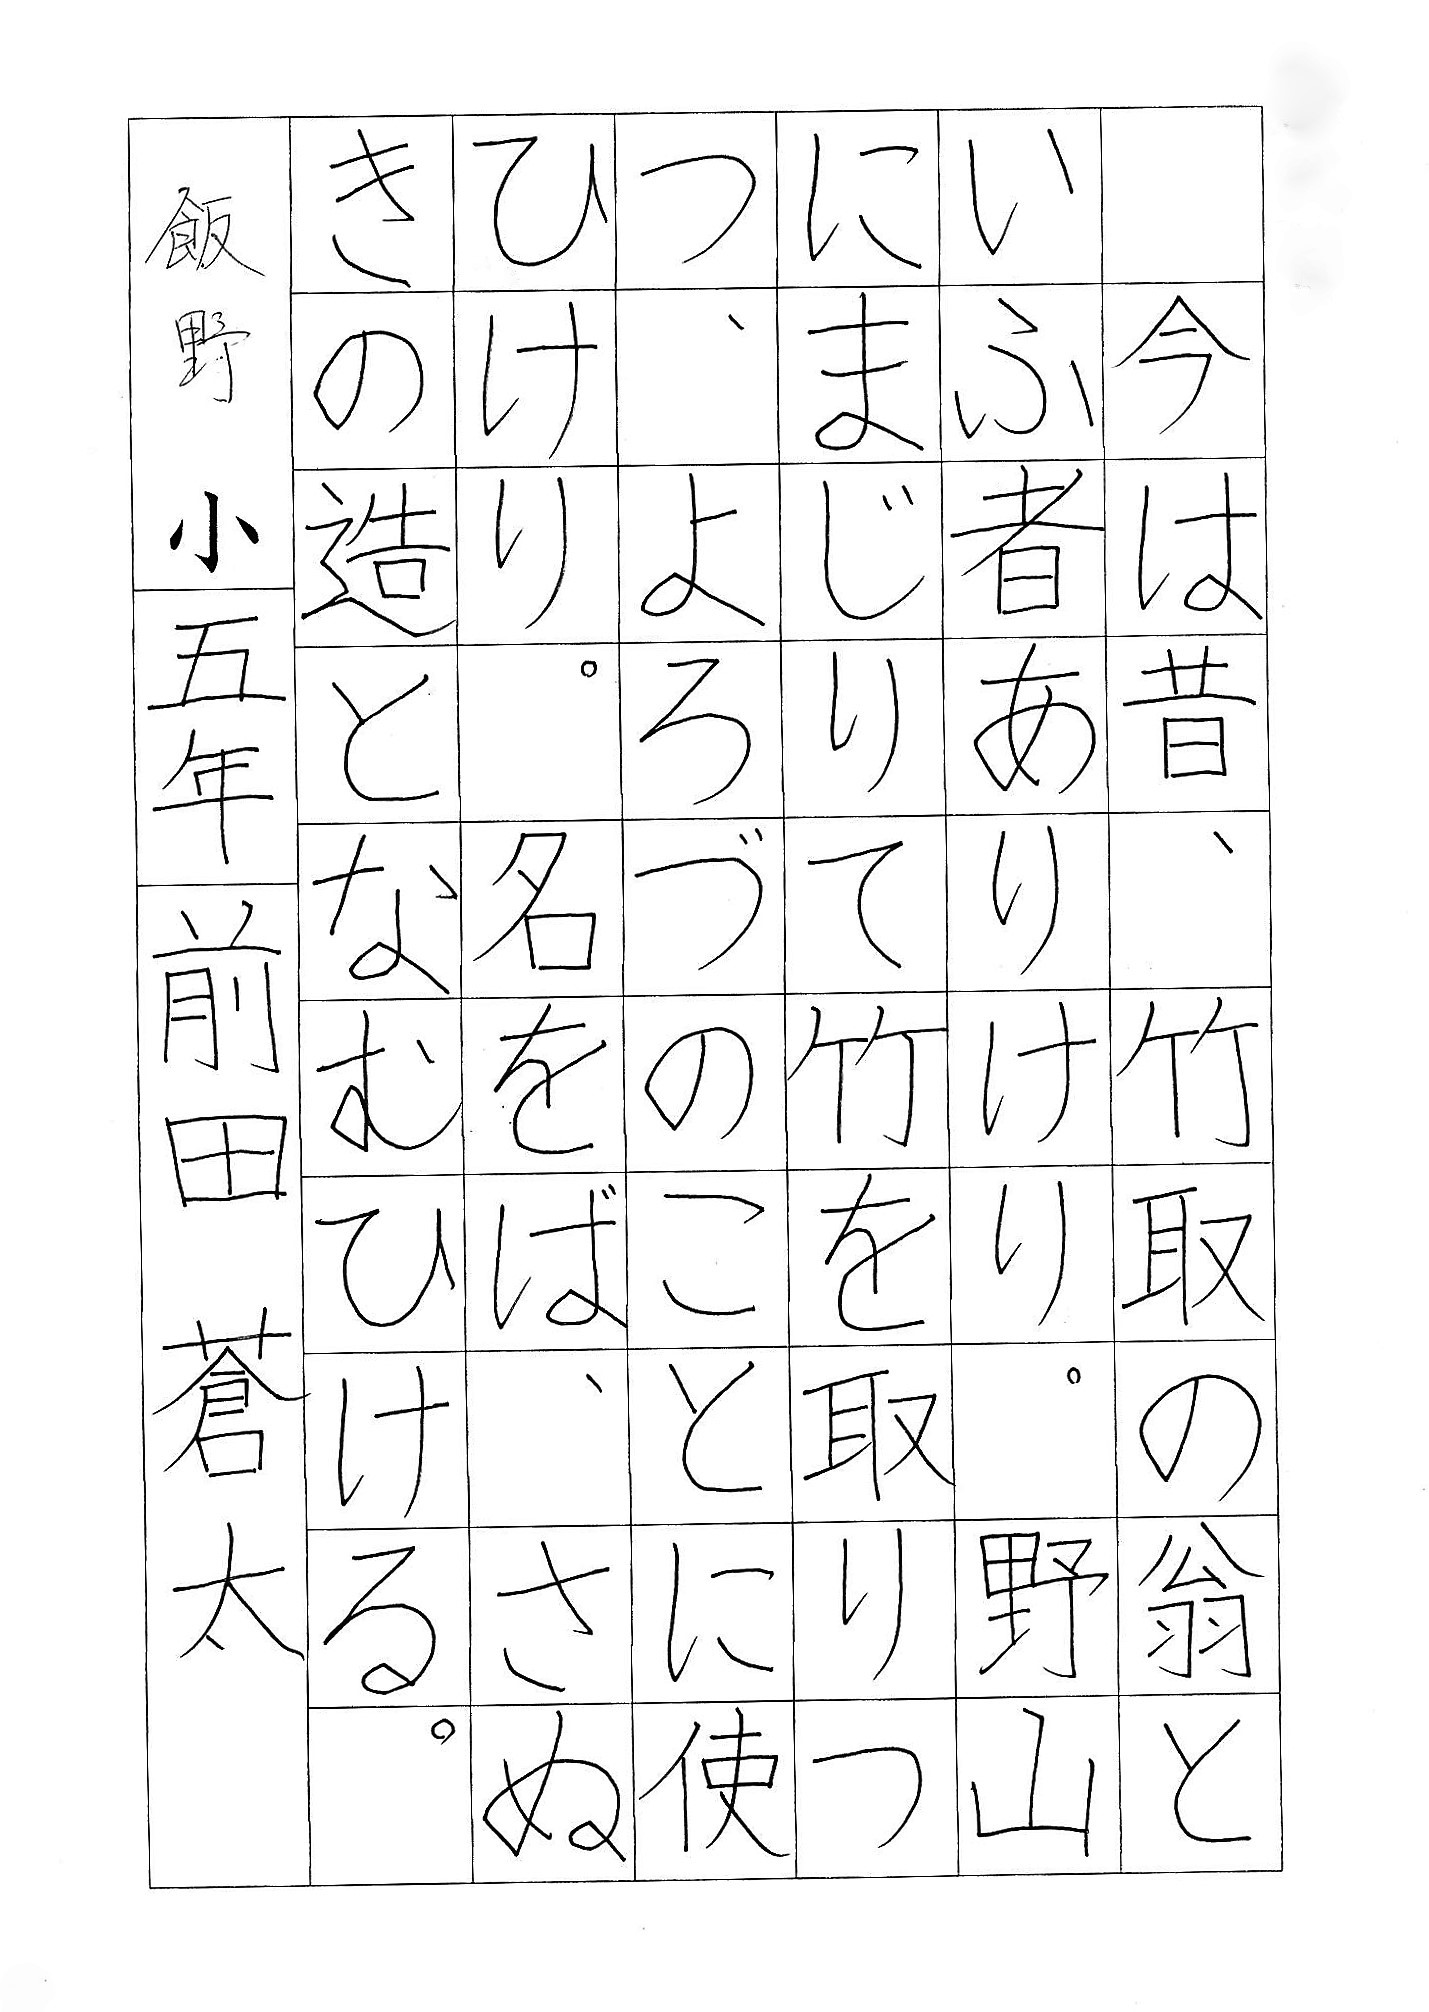 今は昔、竹取の翁と
いふ者ありけり。野山
にまじりて竹を取りつ
つ、よろづのことに使
ひけり。名をば、さぬ
きの造となむひける。
飯野小 五年 前田 蒼太